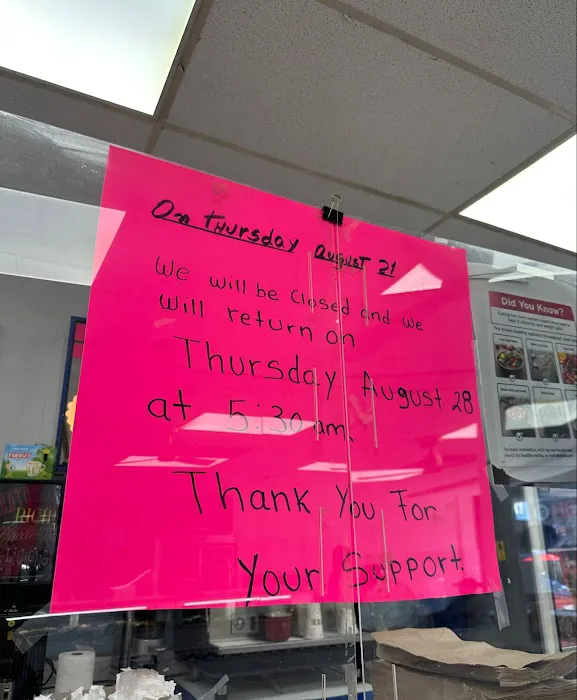 On Thursday August 21
We will be Closed and we
will return on
Thursday August 28
at 5:30 am.
Thank You For
Your Support.
Did You Know?
RICH